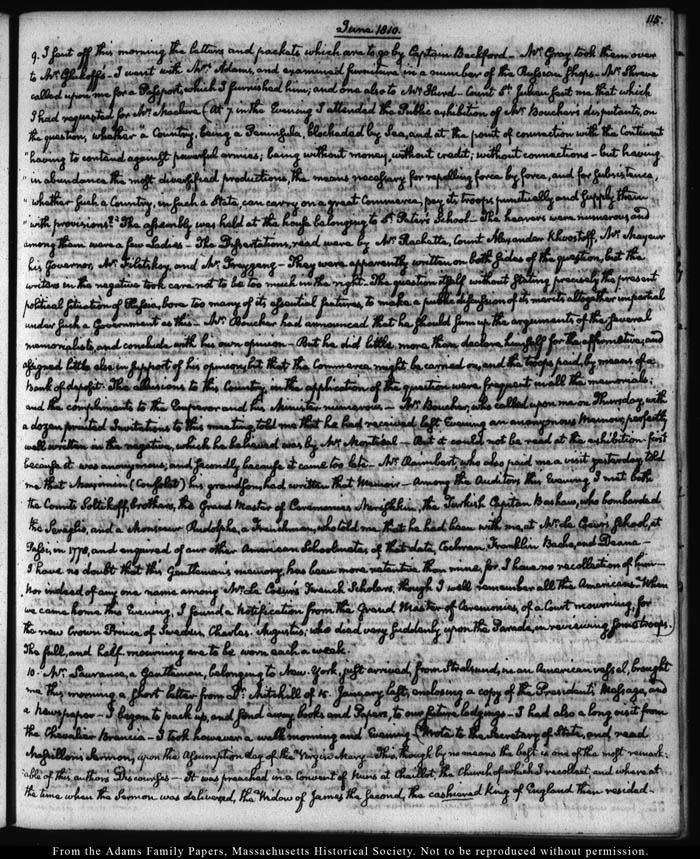 115.
June 1810.
9. I sent off this morning the letters and packets which are to go by Captain Beckford — Mr. Gray took them over
to Mr. — I went with Mrs. Adams, and examined furniture in a number of the Russian Shops — Mr. Thorn
called upon me for a Passport, which I furnished him; and one also to Mr. — Count St. Julien sent me that which
I had requested for Mr. Maclure (At 7 in the Evening I attended the Public exhibition of Mr. Boucher's disputants, on
the question, whether "a Country, being a Peninsula, blockaded by Sea, and at the point of connection with the Continent
"having to contend against powerful armies; being without money, without credit; without connections — but having
"in abundance the most diversified productions, the means necessary for repelling force by force, and for subsistence,
"whether such a Country, in such a State, can carry on a great Commerce, pay its troops punctually and supply them
"with provisions?" The assembly was held at the house belonging to St. Peter's School — The hearers were numerous and
among them were a few Ladies — The Dissertations, read were by Mr. Rachette, Count Alexander Khvostoff, Mr. Mayeur
his Governor, Mr. Filitskoy, and Mr. Freygang — They were apparently written on both sides of the question, but the
writers in the negative took care not to be too much in the right. The question itself without stating precisely the present
political situation of Russia, bore too many of its essential features, to make a public discussion of its merits altogether impartial
under such a Government as this — Mr. Boucher had announced that he should sum up the arguments of the several
memorialists, and conclude with his own opinion — But he did little more than declare himself for the affirmative, and
assigned little else in support of his opinion, but that the Commerce might be carried on, and the troops paid, by means of a
Bank of deposit. The allusions to this Country in the application of the question were frequent in all the memorials;
and the compliments to the Emperor and his Minister numerous — Mr. Boucher, who called upon me on Thursday with
a dozen printed Invitations to this meeting, told me that he had received last Evening an anonymous Memoir, perfectly
well written in the negative, which he believed was by Mr. Montréal — But it could not be read at the exhibition — first
because it was anonymous; and secondly because it came too late — Mr. Raimbert who also paid me a visit yesterday told
me that his grandson, had written that Memoir — Among the Auditors this Evening I met both
the Counts Soltikoff, brothers, the Grand Master of Ceremonies Narishkin, the Turkish Capitan Bashaw, who bombarded
the Seraglio, and a Monsieur Rudolphe, a Frenchman, who told me, that he had been with me, at Mr. Le Coeur's School, at
Passi, in 1778, and enquired of our other American Schoolmates of that date, Cochran, Franklin Bache, and Deane —
I have no doubt that this Gentleman's memory, has been more retentive than mine, for I have no recollection of him —
Nor indeed of any one name among Mr. Le Coeur's French Scholars, though I well remember all the Americans — When
we came home this Evening, I found a Notification from the Grand Master of Ceremonies, of a Court mourning, for
the new Crown Prince of Sweden, Charles Augustus, who died very suddenly upon the Parade, in reviewing some troops.)
The full, and half mourning are to be worn each a week.
10. Mr. Laurance, a Gentleman, belonging to New-York, just arrived, from Stralsund, in an American vessel, brought
me this morning a short letter from Dr. Mitchill of 15. January last, enclosing a copy of the President's Message, and
a Newspaper — I began to pack up, and send away books and Papers, to our future lodgings — I had also a long visit from
the Chevalier Brancia — I took however a walk morning and Evening (Wrote to the Secretary of State, and read
Massillon's Sermon, upon the Assumption day of the Virgin Mary — This, though by no means the best is one of the most remark-
able of this authors Discourses — It was preached in a Convent of Nuns at Chaillot, the Church of which I recollect, and where at
the time when the Sermon was delivered, the Widow of James the Second, the cashiered King of England then resided —
From the Adams Family Papers, Massachusetts Historical Society. Not to be reproduced without permission.